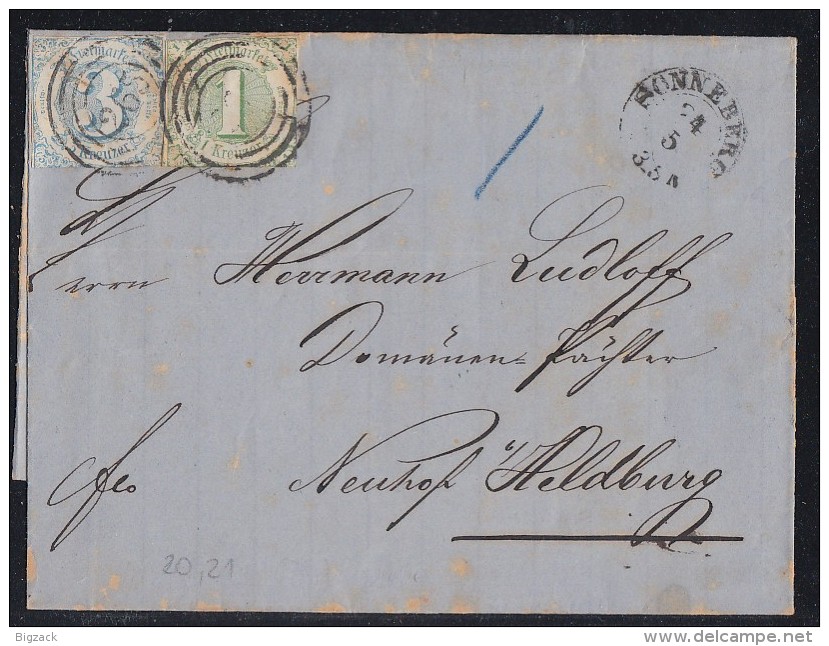 Freimarke
3
Kreuzer
Freimarke
1
Kreuzer
SONNEBERG
24
5
Herrn Herrmann Ludloff
Domänen-Pächter
fco Neuhof b/Heldburg
20,21
Bigzack
delcampe.net